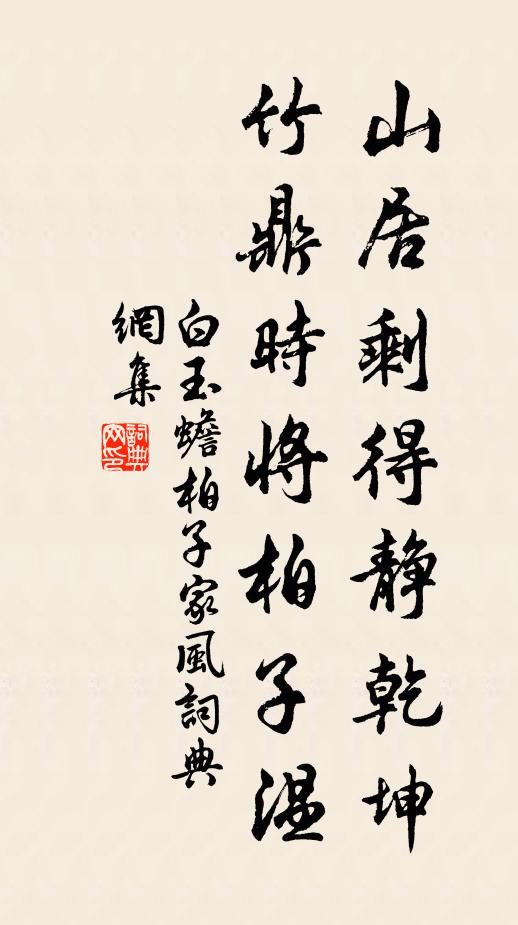 山居剩得静乾坤
竹鼎時将柏子温
白玉蟾柏子家風詞典
網集
詞典
网印